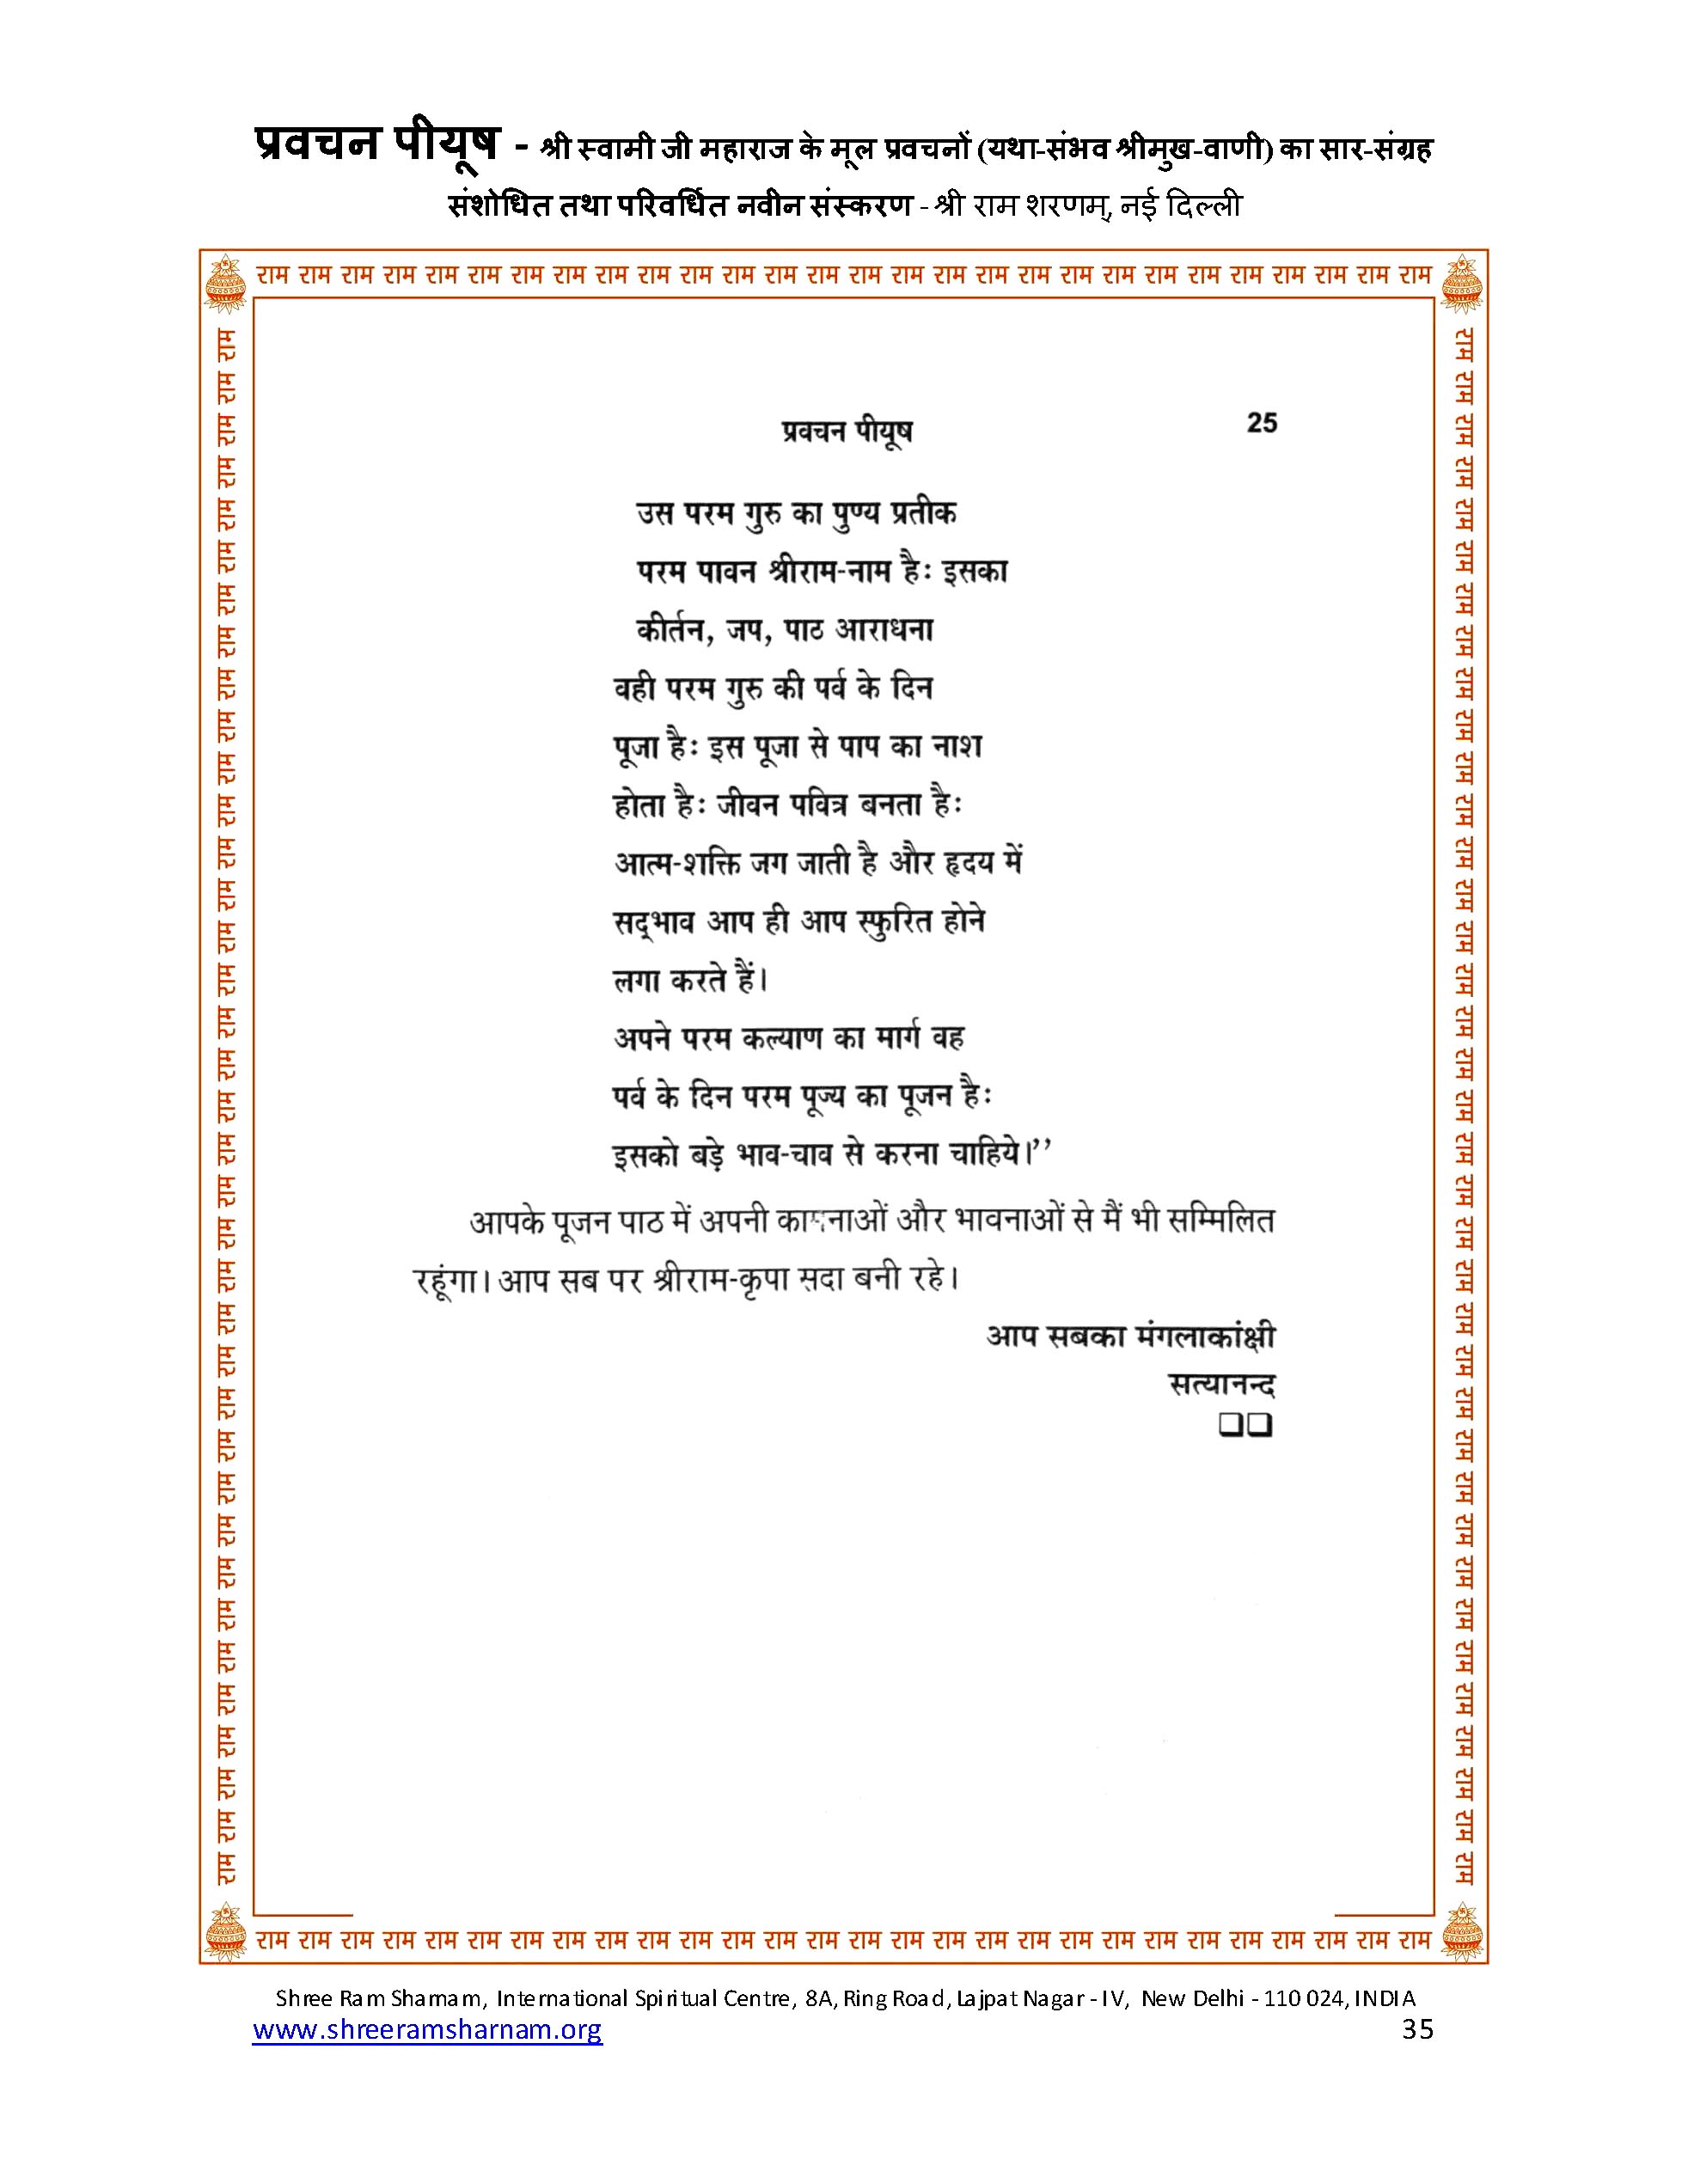 प्रवचन पीयूष - श्री स्वामी जी महाराज के मूल प्रवचनों (यथा-संभव श्रीमुख-वाणी) का सार-संग्रह
संशोधित तथा परिवर्धित नवीन संस्करण - श्री राम शरणम्, नई दिल्ली
राम राम राम राम राम राम राम राम राम राम राम राम राम राम राम राम राम राम राम राम राम राम राम राम राम राम राम राम
प्रवचन पीयूष 25
उस परम गुरु का पुण्य प्रतीक
परम पावन श्रीराम-नाम है: इसका
कीर्तन, जप, पाठ आराधना
वही परम गुरु की पर्व के दिन
पूजा है: इस पूजा से पाप का नाश
होता है: जीवन पवित्र बनता है:
आत्म-शक्ति जग जाती है और हृदय में
सद्भाव आप ही आप स्फुरित होने
लगा करते हैं।
अपने परम कल्याण का मार्ग वह
पर्व के दिन परम पूज्य का पूजन है:
इसको बड़े भाव-चाव से करना चाहिये।’’
आपके पूजन पाठ में अपनी कामनाओं और भावनाओं से मैं भी सम्मिलित
रहूंगा। आप सब पर श्रीराम-कृपा सदा बनी रहे।
आप सबका मंगलाकांक्षी
सत्यानन्द
राम राम राम राम राम राम राम राम राम राम राम राम राम राम राम राम राम राम राम राम राम राम राम राम राम राम राम राम राम राम राम राम राम राम राम राम राम
राम राम राम राम राम राम राम राम राम राम राम राम राम राम राम राम राम राम राम राम राम राम राम राम राम राम राम राम राम राम राम राम राम राम राम राम राम
राम राम राम राम राम राम राम राम राम राम राम राम राम राम राम राम राम राम राम राम राम राम राम राम राम राम राम राम
Shree Ram Sharnam, International Spiritual Centre, 8A, Ring Road, Lajpat Nagar - IV, New Delhi - 110 024, INDIA
www.shreeramsharnam.org 35